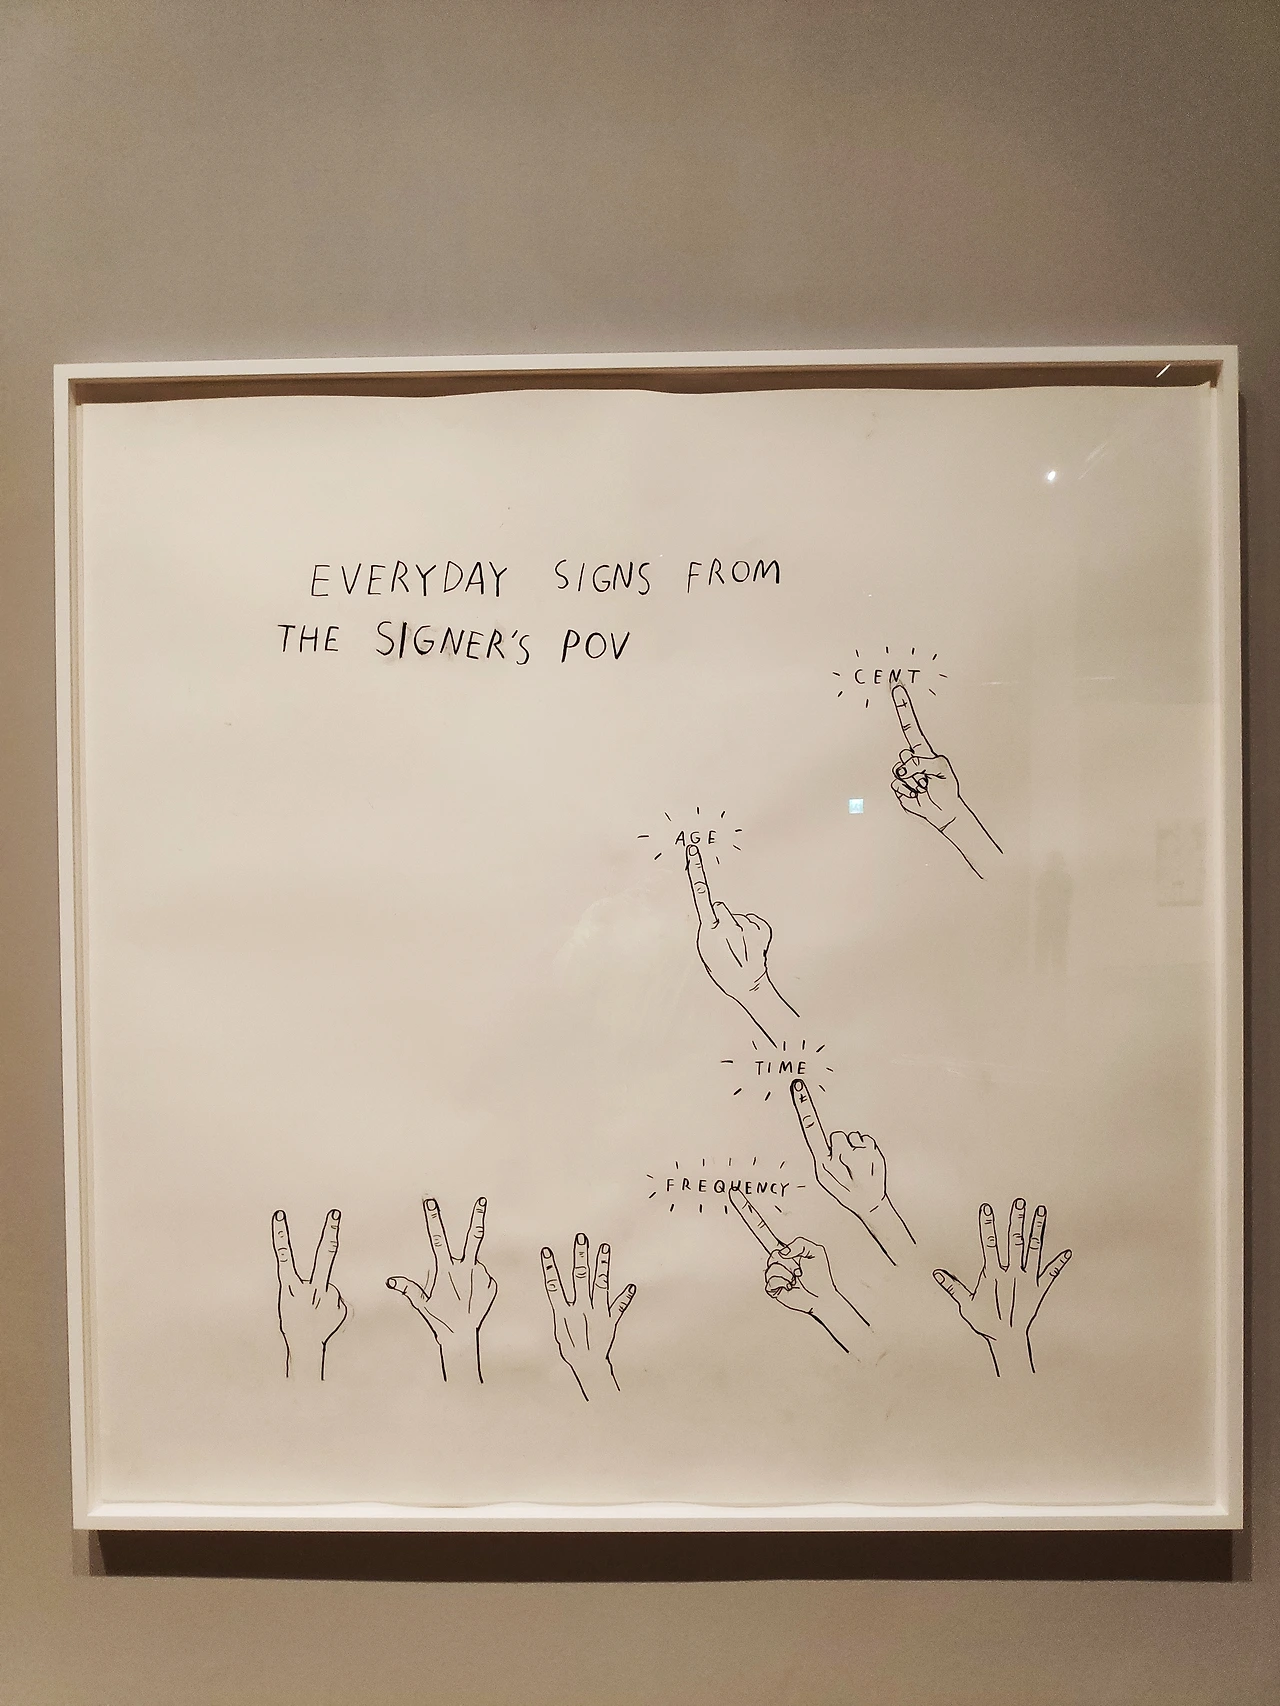 EVERYDAY SIGNS FROM
THE SIGNER'S POV
CENT
AGE
TIME
FREQUENCY